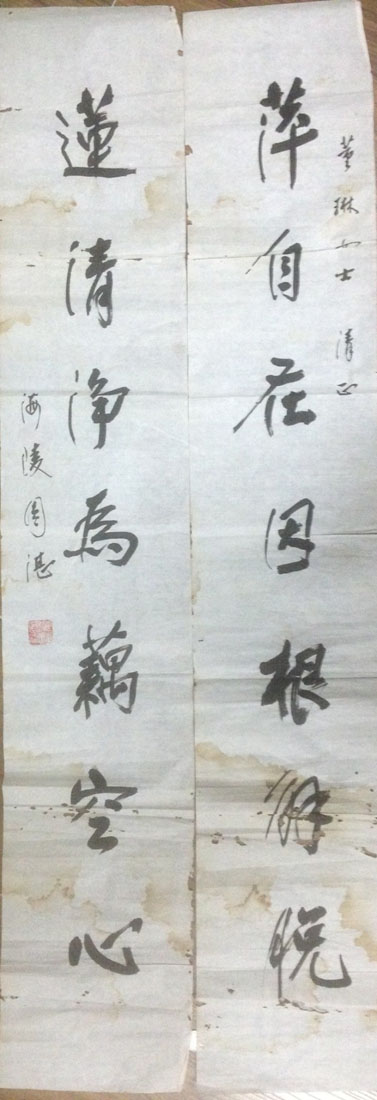 董琳女士 清正
萍自在因根解脱
蓮清净為藕空心
海陵圓湛